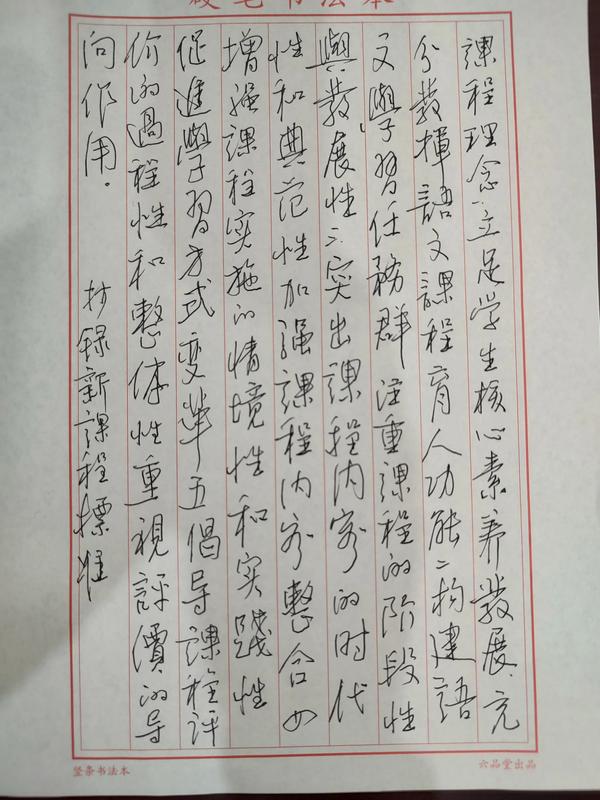 硬笔书法本
課程理念一立足学生核心素养發展、充
分發揮語文課程育人功能二构建語
文學習任務群注重課程的阶段性
與發展性三突出課程内容的时代
性和典范性加强課程内容整合四
增强課程实施的情境性和实践性
促進學習方式变革五倡导課程评
价的過程性和整体性重視評價的导
向作用。
抄録新課程標准
竖条书法本
六品堂出品